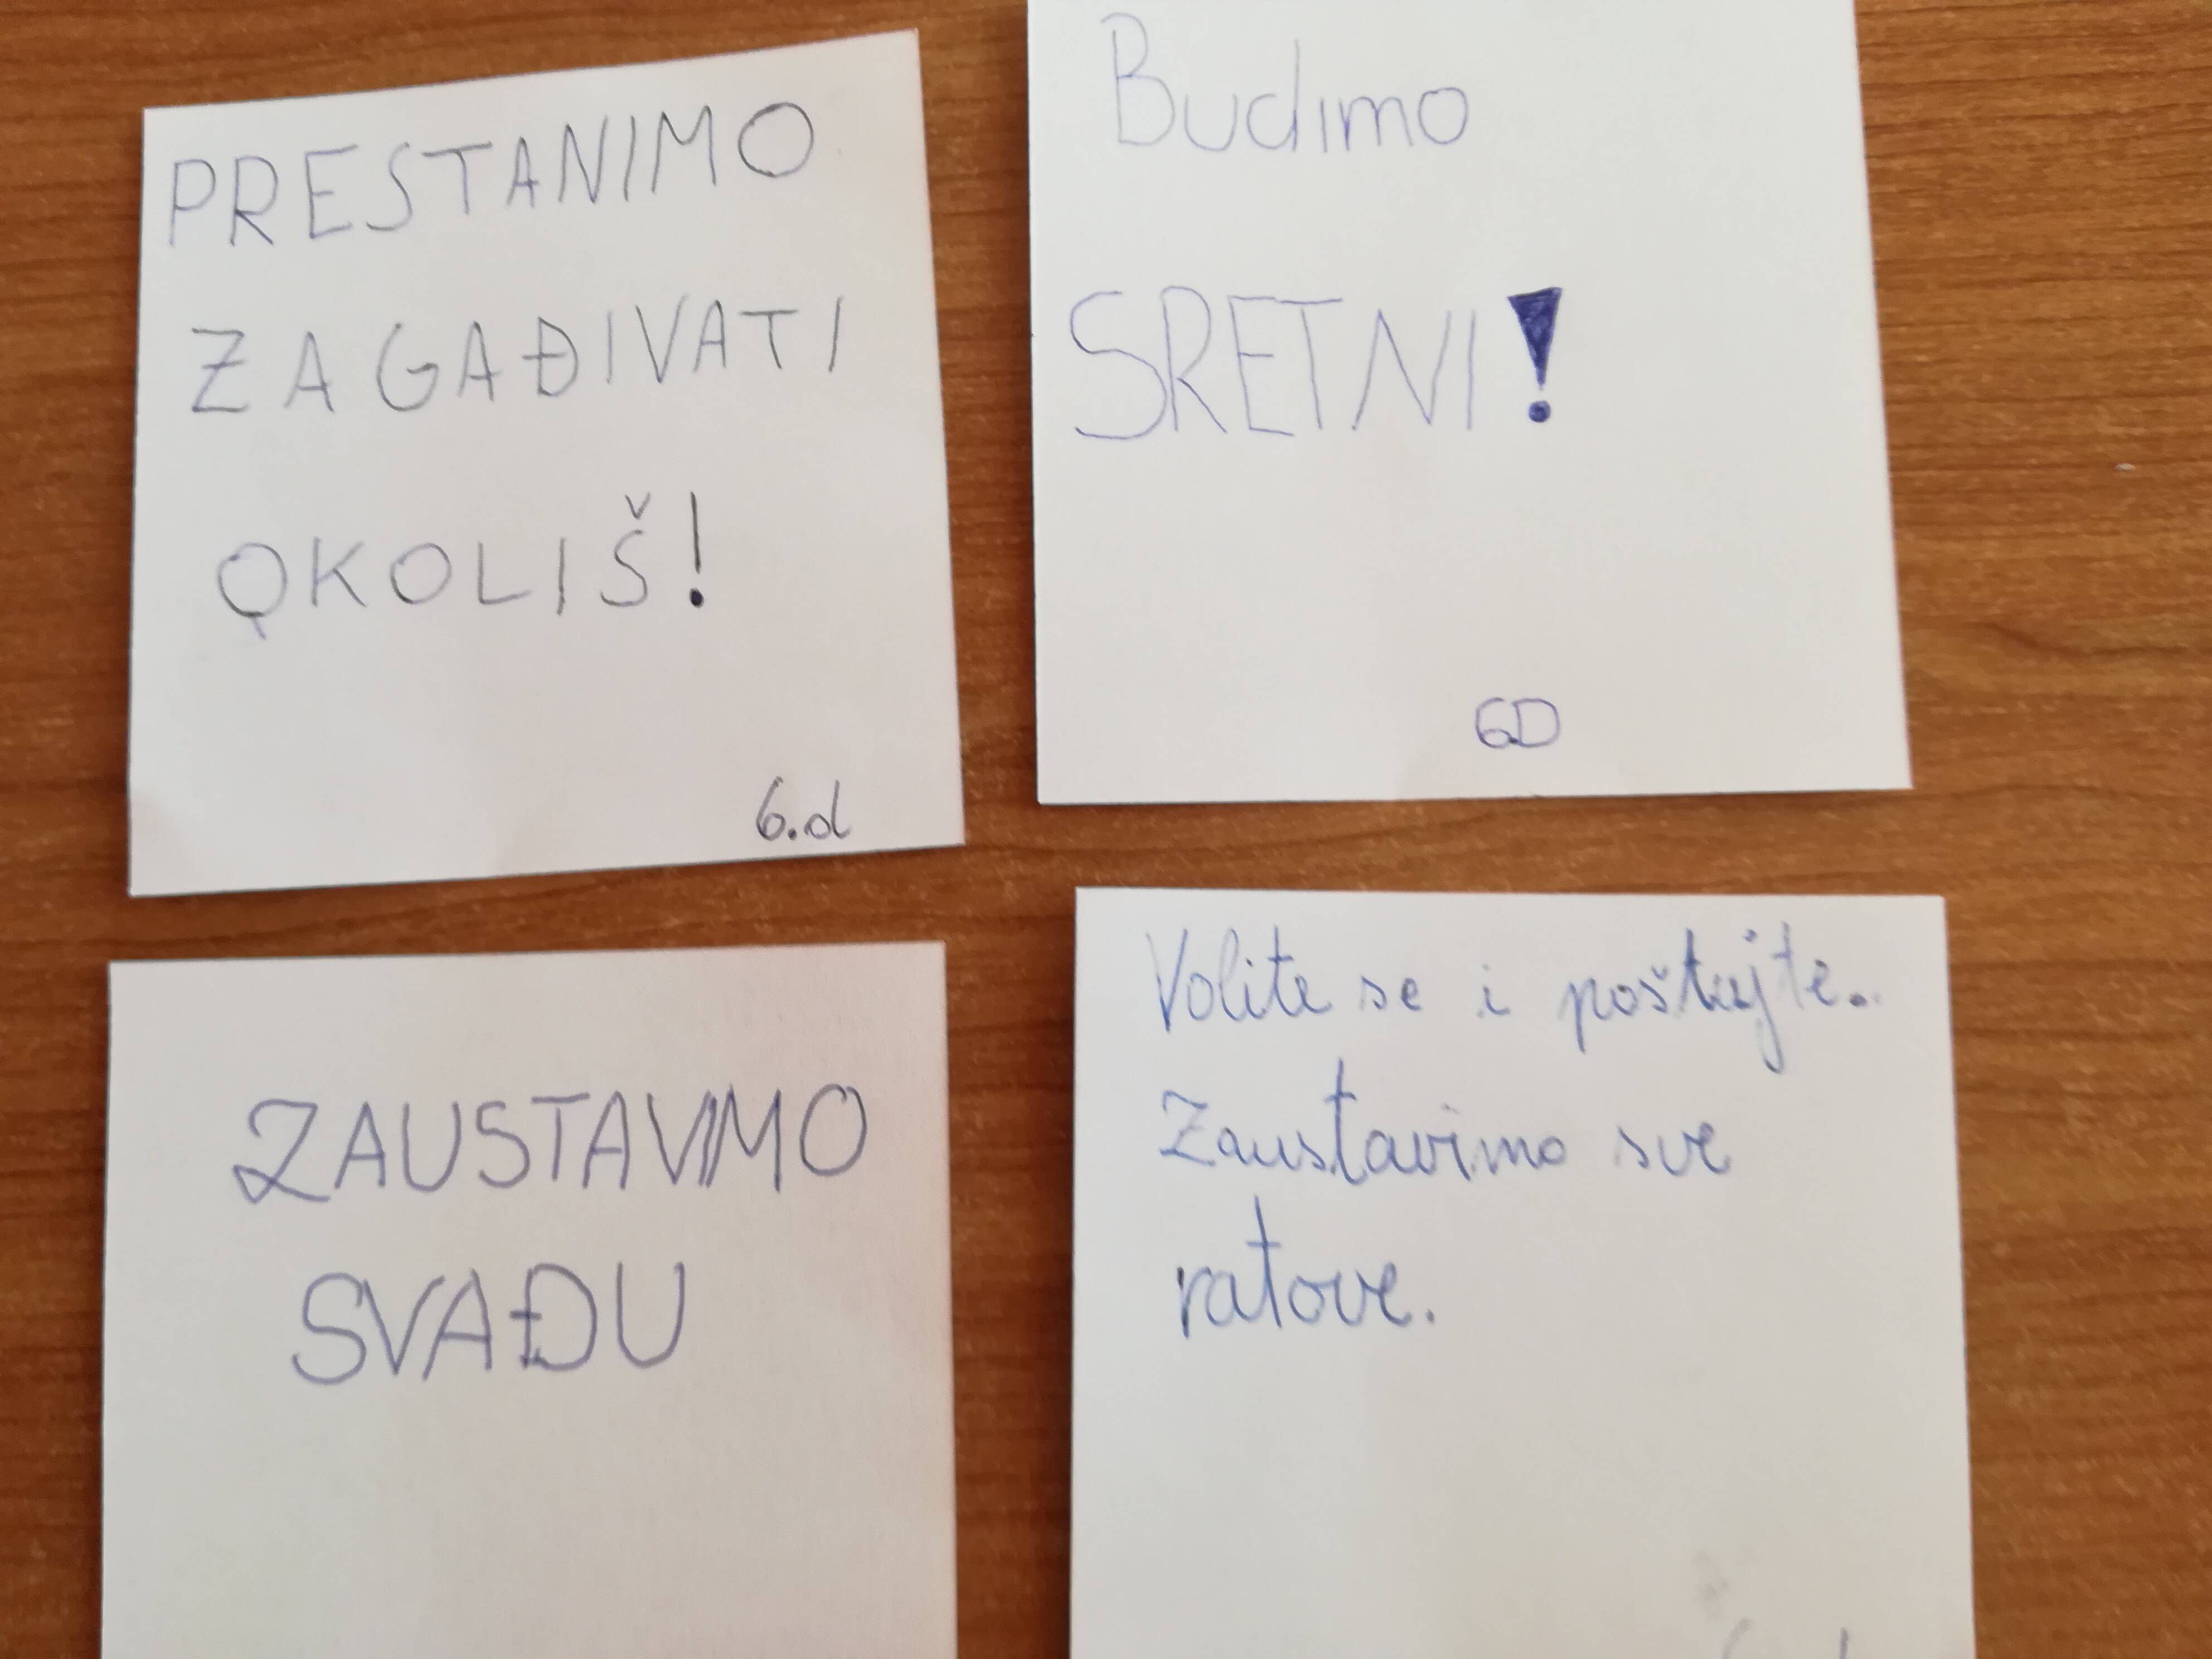 PRESTANIMO
ZAGAĐIVATI
OKOLIŠ!
6.d
Budimo
SRETNI!
6D
ZAUSTAVIMO
SVAĐU
Volite se i poštujte.
Zaustavimo sve
ratove.